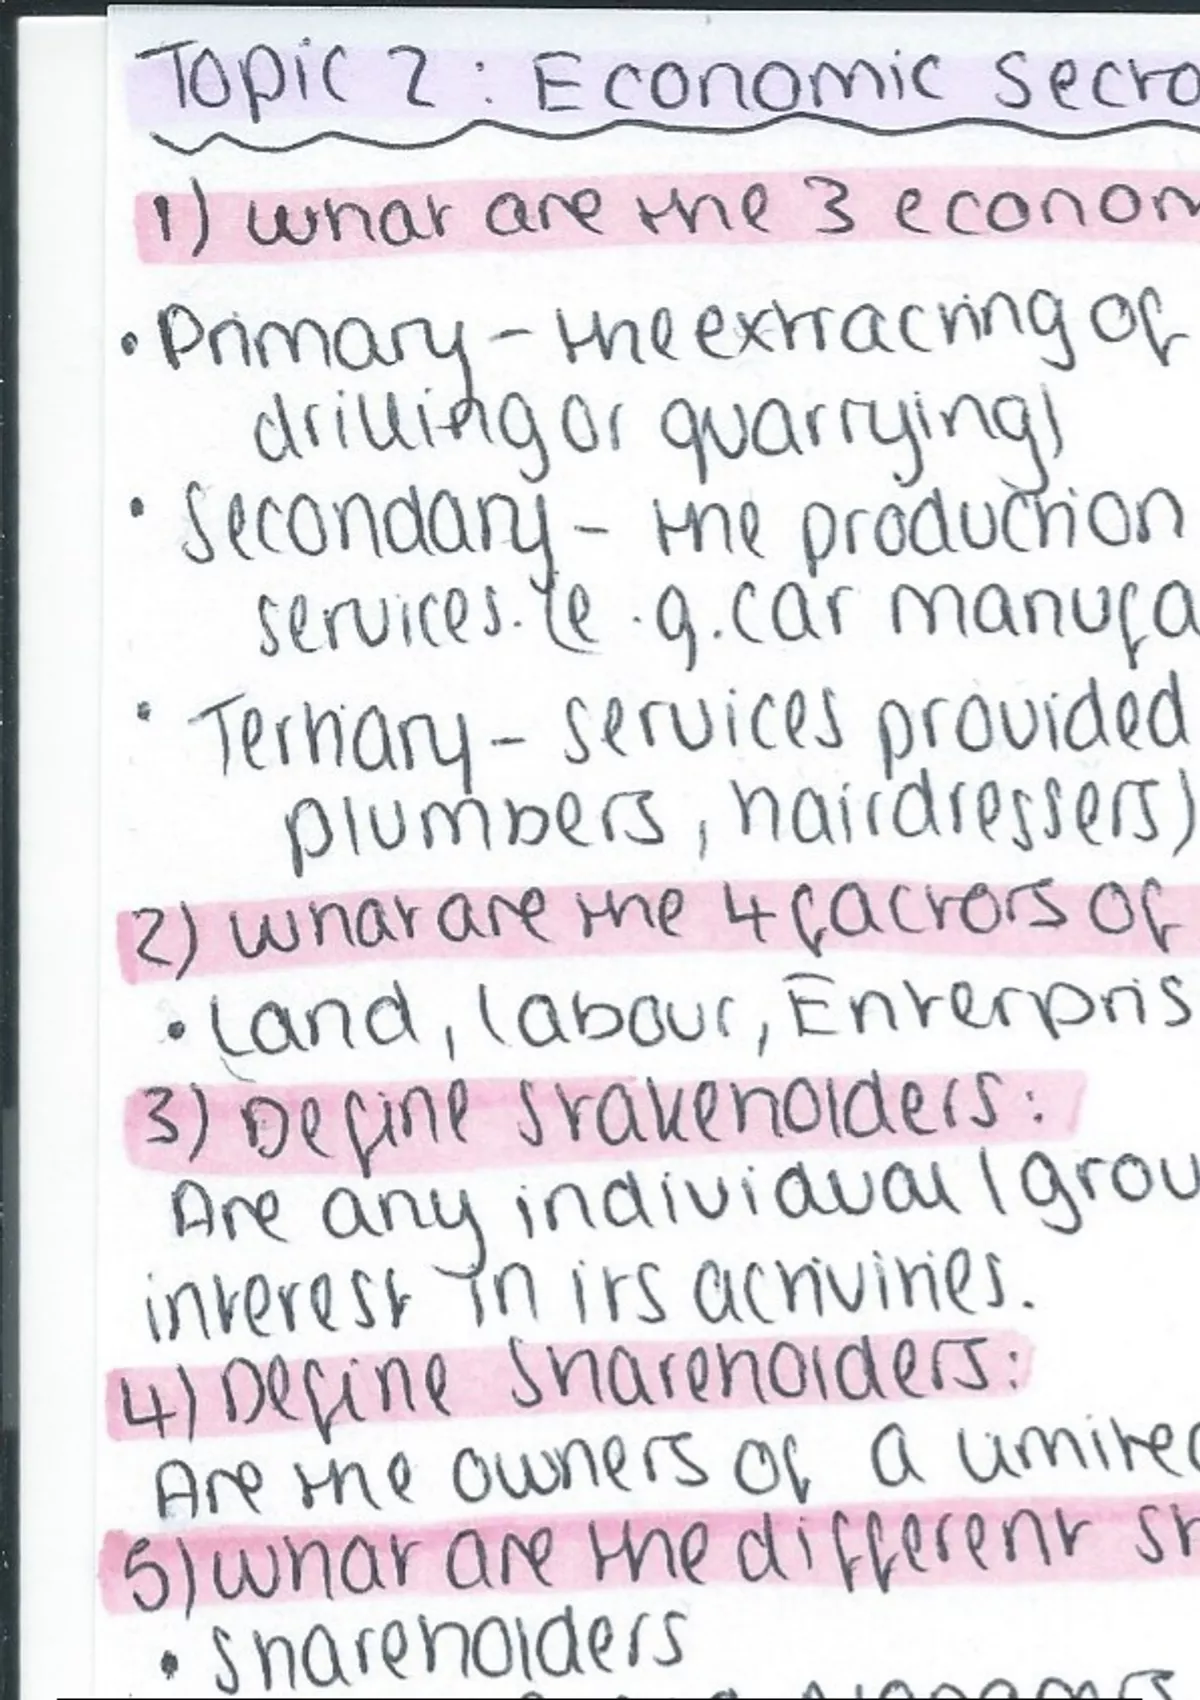 Topic 2 : Economic Secto
1) what are the 3 econom
• Primary - the extracting of
drilling or quarrying)
• Secondary - the production
services. (e.g. car manufa
• Tertiary - services provided
plumbers, hairdressers)
2) what are the 4 factors of
• Land, labour, Enterpris
3) Define Stakeholders:
Are any individual / grou
interest in its activities.
4) Define Shareholders:
Are the owners of a limited
5) what are the different st
• Shareholders